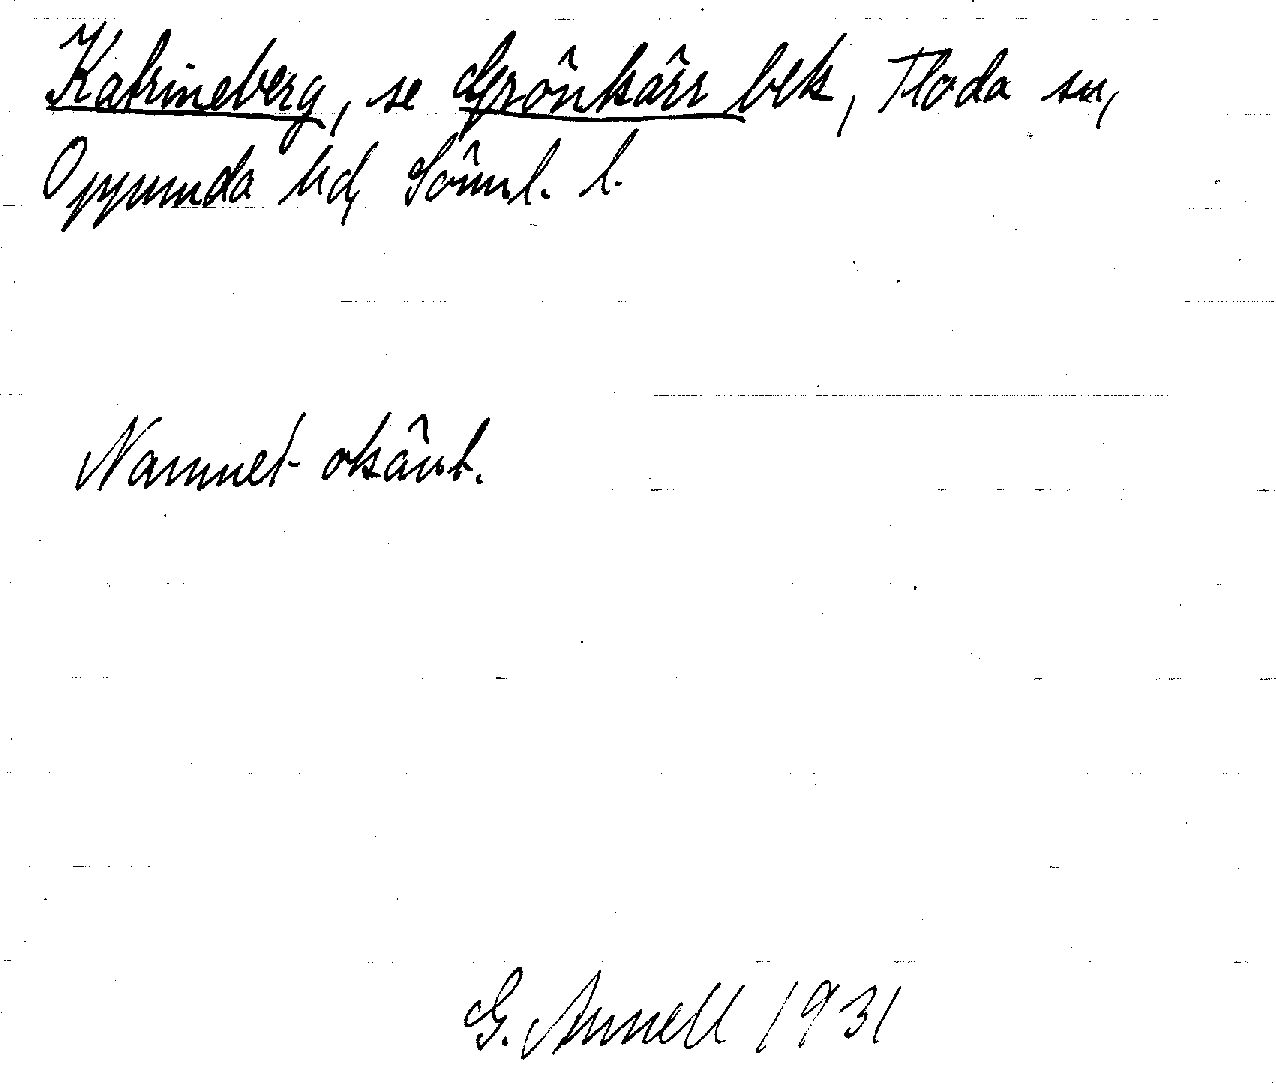 Katrineberg, se Grönkärr bek, Floda sn,
Oppunda hd, Söml. l.
Namnet okänt.
G. Annell 1931